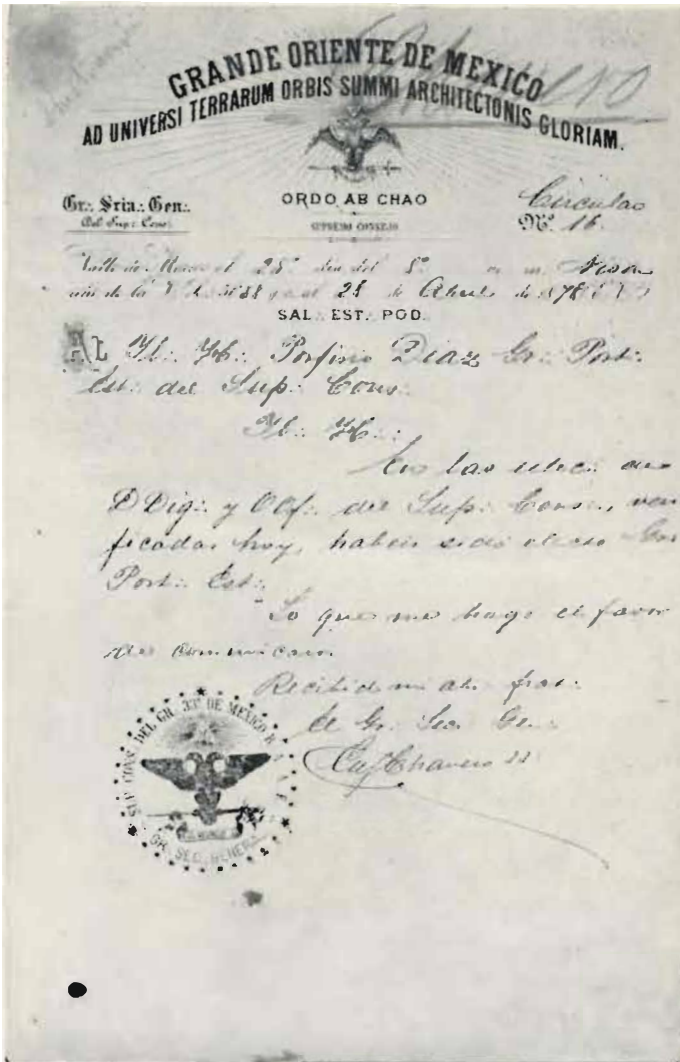 GRANDE ORIENTE DE MEXICO
AD UNIVERSI TERRARUM ORBIS SUMMI ARCHITECTONIS GLORIAM.
Gr∴ Sria∴ Gen∴
Del Sup∴ Cons∴
ORDO AB CHAO
SUPREMO CONSEJO
Circular
Nº 16.
Valle de Mexico el 28º dia del
año de la y el 28 de Abril de
SAL∴ EST∴ POD∴
Al Il∴ H∴ Porfirio Diaz Gr∴ Port∴
Est∴ del Sup∴ Cons∴
Il∴ H∴:
En las de
DDig∴ y OOf∴ del Sup∴ Cons∴, veri
ficadas hoy, habeis sido electo Gr
Port∴ Est∴
Lo que me hago el favor
de comunicaros.
Recibid mi frat∴
El Gr∴ Sec∴ Gen∴
Chavero
SUP. CONS. DEL GR. 33º DE MEXICO
GR. SEC. GENERAL